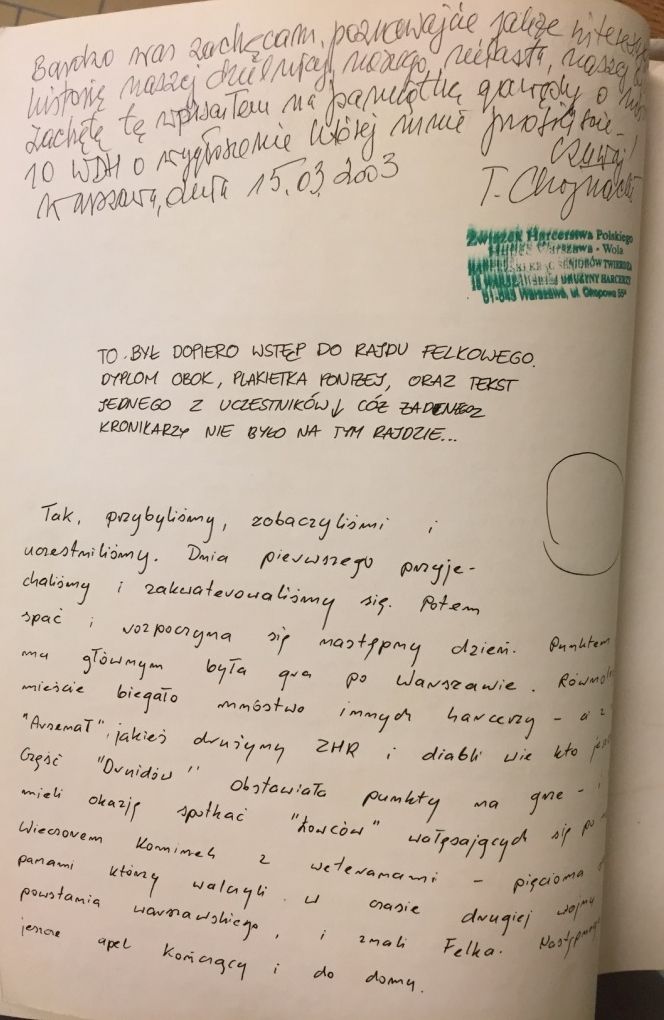 Bardzo was zachęcam, poznawajcie jakże interesu
historię naszej dzielnicy, naszego miasta, naszej
Zachętę tę wpisałem na pamiątkę gawędy o
10 WDH o wygłoszenie której mnie prosiliście -
Czuwaj!
Warszawa, dnia 15.03.2003
T. Chojnacki
Związek Harcerstwa Polskiego
Hufiec Warszawa - Wola
HARCERSKI KRĄG SENIORÓW TWIERDZA
DRUŻYNY HARCERZY
01-043 Warszawa, ul. Okopowa 55ª
TO BYŁ DOPIERO WSTĘP DO RAJDU FELKOWEGO.
DYPLOM OBOK, PLAKIETKA PONIŻEJ, ORAZ TEKST
JEDNEGO Z UCZESTNIKÓW↓ CÓŻ ŻADNEGO
KRONIKARZY NIE BYŁO NA TYM RAJDZIE...
Tak, przybyliśmy, zobaczyliśmi i
uczestniliśmy. Dnia pierwszego przyje-
chaliśmy i zakwaterowaliśmy się. Potem
spać i rozpoczyna się następny dzień. Punktem
ma głównym była gra po Warszawie. Równo
mieście biegało mnóstwo innych harcerzy - a z
"Arsenał", jakieś drużyny ZHR i diabli wie kto
Część "Druidów" obstawiała punkty na grze -
mieli okazję spotkać "Łowców" wałęsających się po
Wieczorem kominek z weteranami - pięcioma
panami którzy walczyli w czasie drugiej wojny
powstania warszawskiego, i znali Felka. Następnego
jeszcze apel kończący i do domy.